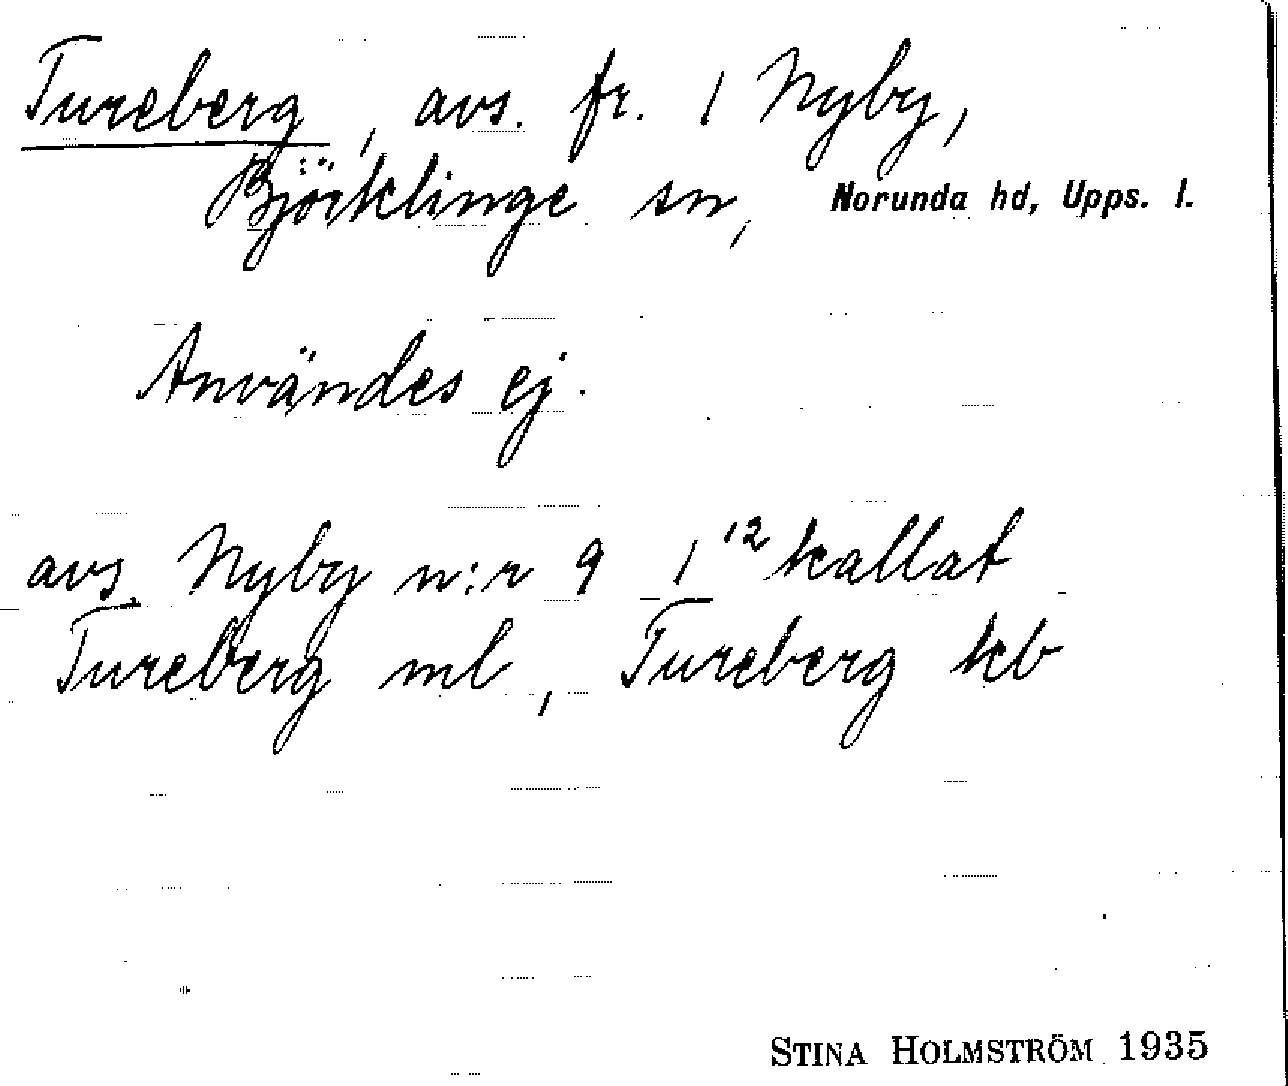 Tureberg, avs. fr. 1 Nyby,
Björklinge sn, Norunda hd, Upps. l.
Användes ej.
avs. Nyby n:r 9 1¹² kallat
Tureberg ml, Tureberg kb
STINA HOLMSTRÖM 1935